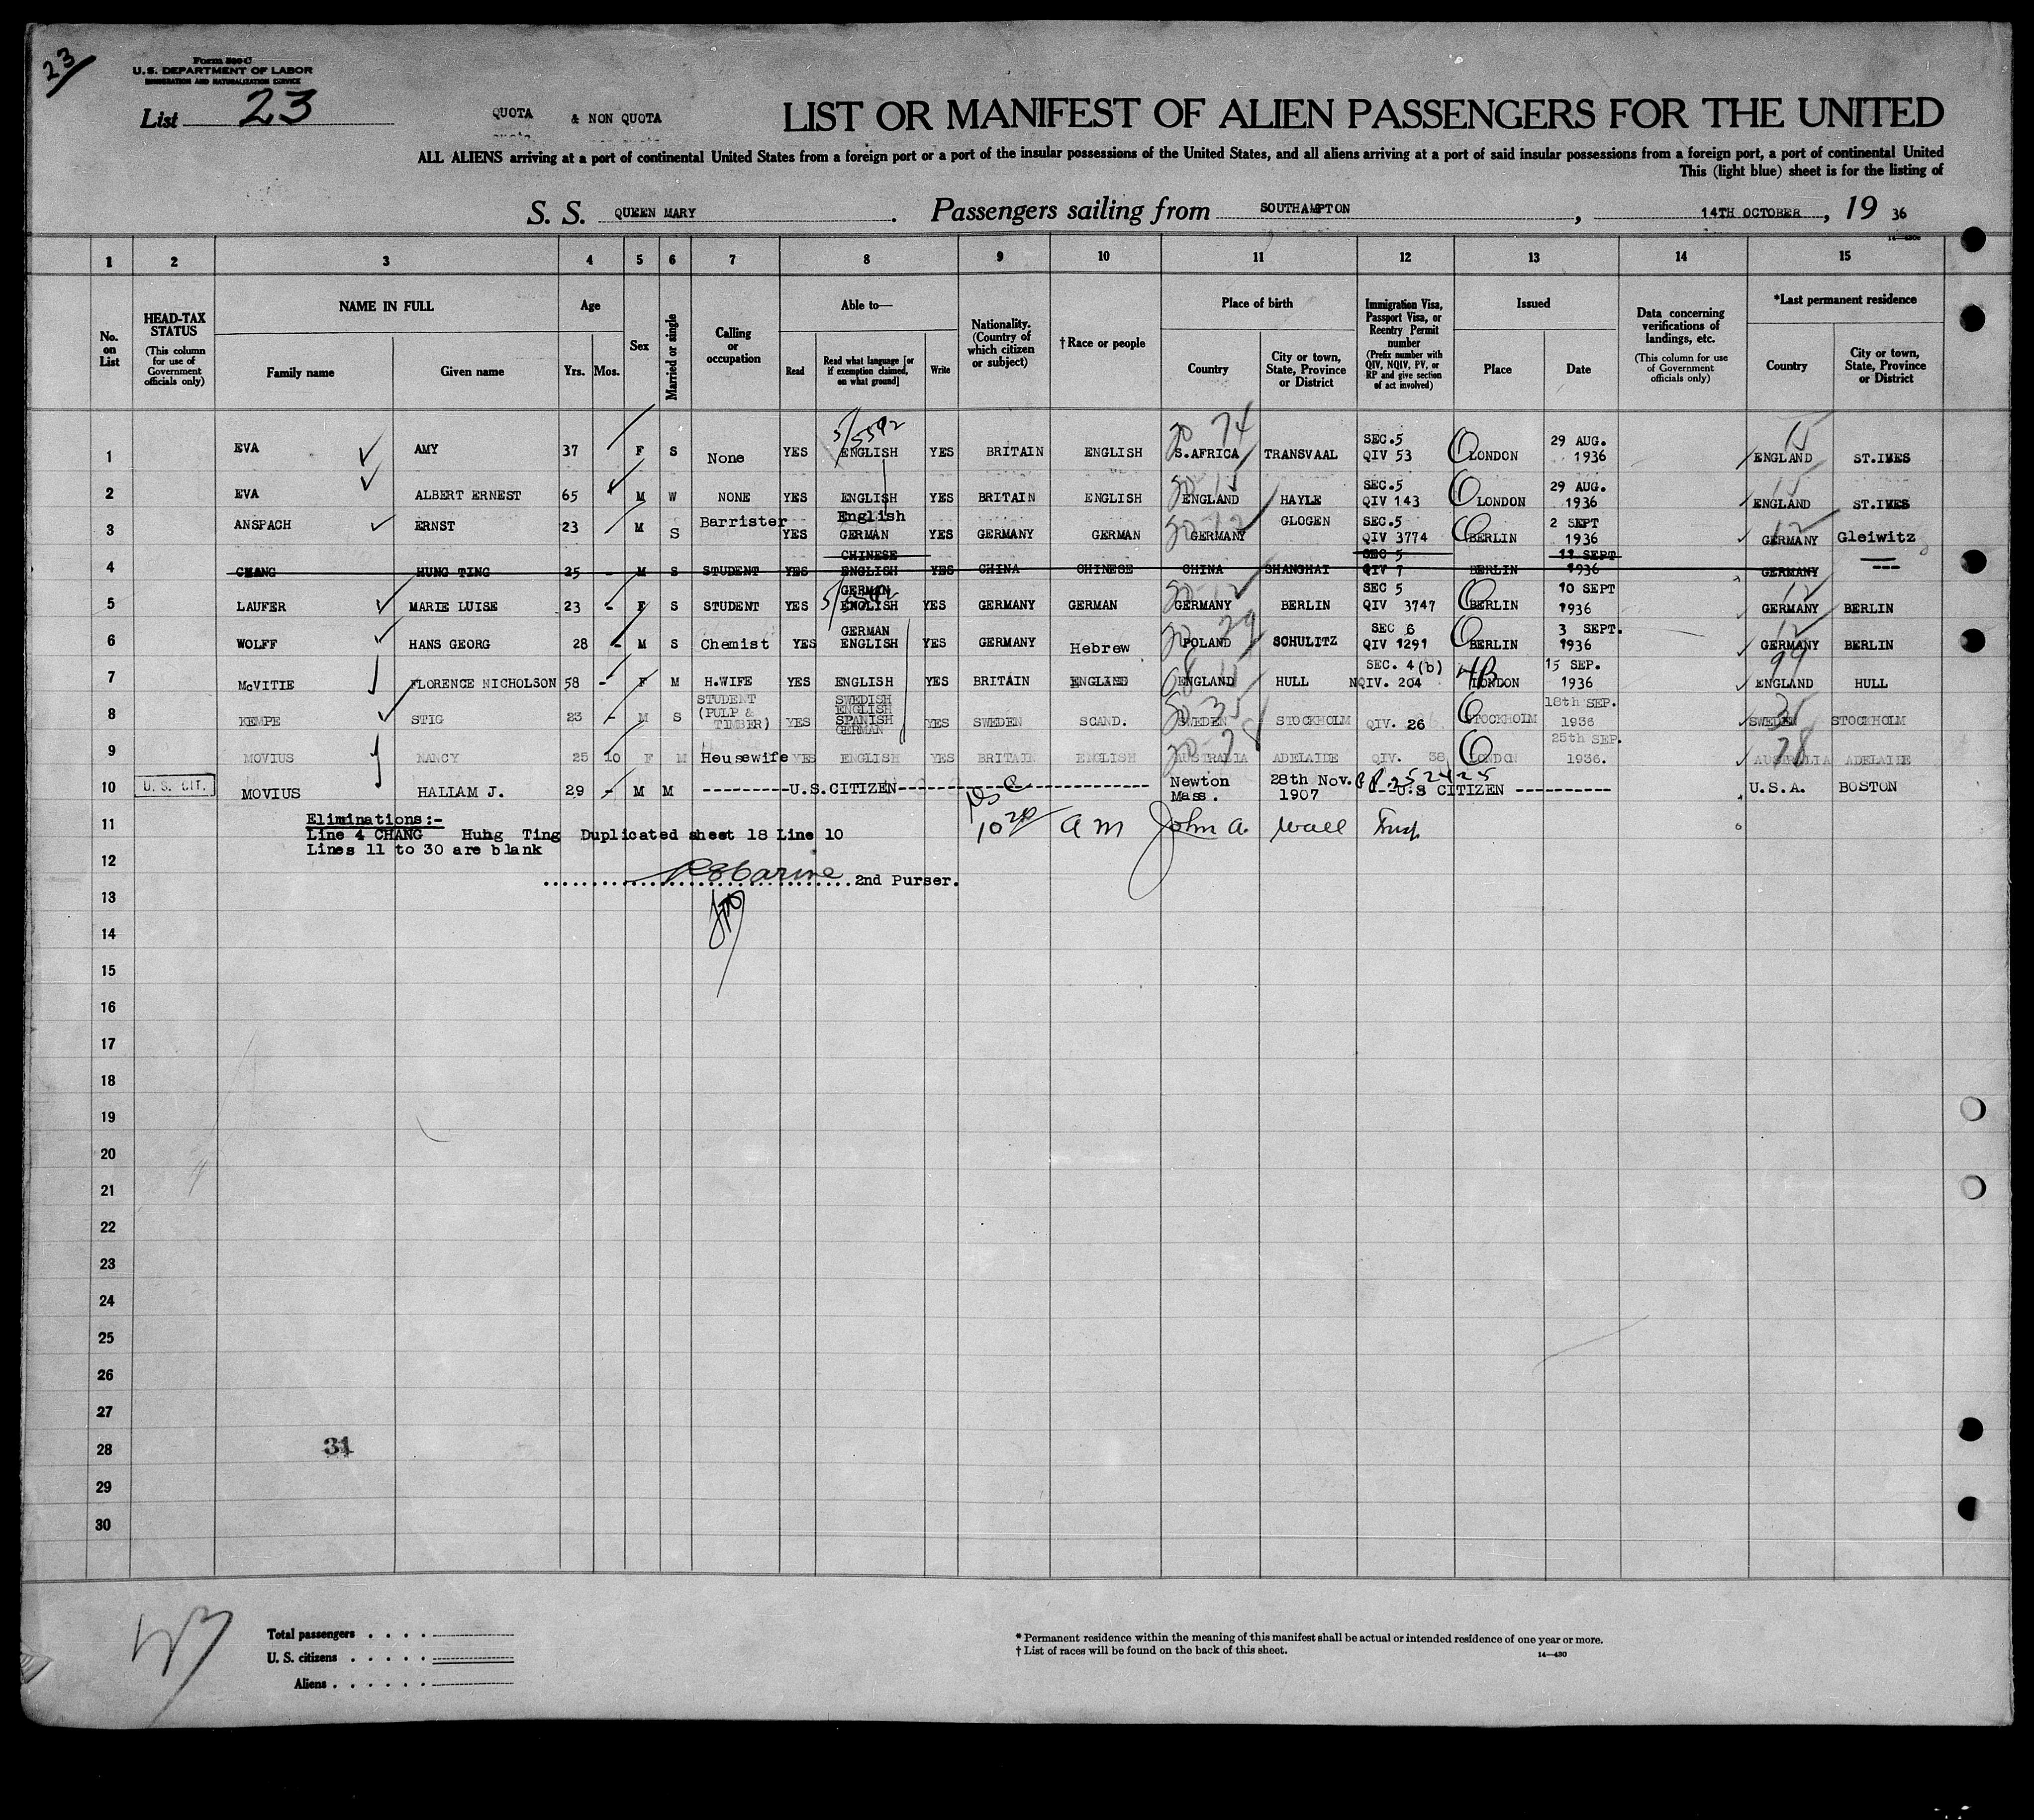 23
Form 500 C
U.S. DEPARTMENT OF LABOR
IMMIGRATION AND NATURALIZATION SERVICE
List 23
QUOTA & NON QUOTA
LIST OR MANIFEST OF ALIEN PASSENGERS FOR THE UNITED
ALL ALIENS arriving at a port of continental United States from a foreign port or a port of the insular possessions of the United States, and all aliens arriving at a port of said insular possessions from a foreign port, a port of continental United
This (light blue) sheet is for the listing of
S. S. QUEEN MARY. Passengers sailing from SOUTHAMPTON, 14TH OCTOBER, 19 36
1 2 3 4 5 6 7 8 9 10 11 12 13 14 15
No. on List
HEAD-TAX STATUS (This column for use of Government officials only)
NAME IN FULL Family name Given name
Age Yrs. Mos.
Sex
Married or single
Calling or occupation
Able to— Read Read what language [or if exemption claimed, on what ground] Write
Nationality. (Country of which citizen or subject)
†Race or people
Place of birth Country City or town, State, Province or District
Immigration Visa, Passport Visa, or Reentry Permit number (Prefix number with QIV, NQIV, PV, or RP and give section of act involved)
Issued Place Date
Data concerning verifications of landings, etc. (This column for use of Government officials only)
*Last permanent residence Country City or town, State, Province or District
1 EVA AMY 37 F S None YES ENGLISH YES BRITAIN ENGLISH S.AFRICA TRANSVAAL SEC.5 QIV 53 LONDON 29 AUG. 1936 ENGLAND ST.IVES
2 EVA ALBERT ERNEST 65 M W NONE YES ENGLISH YES BRITAIN ENGLISH ENGLAND HAYLE SEC.5 QIV 143 LONDON 29 AUG. 1936 ENGLAND ST.IVES
3 ANSPACH ERNST 23 M S Barrister YES English GERMAN YES GERMANY GERMAN GERMANY GLOGEN SEC.5 QIV 3774 BERLIN 2 SEPT 1936 GERMANY Gleiwitz
4 CHANG HUNG TING 25 - M S STUDENT YES CHINESE ENGLISH YES CHINA CHINESE CHINA SHANGHAI SEC 5 QIV 7 BERLIN 11 SEPT 1936 GERMANY ---
5 LAUFER MARIE LUISE 23 - F S STUDENT YES GERMAN ENGLISH YES GERMANY GERMAN GERMANY BERLIN SEC 5 QIV 3747 BERLIN 10 SEPT 1936 GERMANY BERLIN
6 WOLFF HANS GEORG 28 - M S Chemist YES GERMAN ENGLISH YES GERMANY Hebrew POLAND SCHULITZ SEC 6 QIV 1291 BERLIN 3 SEPT. 1936 GERMANY BERLIN
7 McVITIE FLORENCE NICHOLSON 58 - F M H.WIFE YES ENGLISH YES BRITAIN ENGLAND HULL SEC. 4(b) NQIV. 204 LONDON 15 SEP. 1936 ENGLAND HULL
8 KEMPE STIG 23 - M S STUDENT (PULP & TIMBER) YES SWEDISH ENGLISH SPANISH GERMAN YES SWEDEN SCAND. SWEDEN STOCKHOLM QIV. 26 STOCKHOLM 18th SEP. 1936 SWEDEN STOCKHOLM
9 MOVIUS NANCY 25 10 F M Housewife YES ENGLISH YES BRITAIN ENGLISH AUSTRALIA ADELAIDE QIV. 38 LONDON 25th SEP. 1936. AUSTRALIA ADELAIDE
10 U.S. CIT. MOVIUS HALLAM J. 29 - M M ---------U.S.CITIZEN--------- Newton Mass. 28th Nov. 1907 PP 252425 U.S CITIZEN ---------- U.S.A. BOSTON
11 Eliminations:-
Line 4 CHANG Hung Ting Duplicated sheet 18 Line 10
10 20 a m John A. Wall Insp.
Lines 11 to 30 are blank
12
2nd Purser.
13
14
15
16
17
18
19
20
21
22
23
24
25
26
27
28 31
29
30
Total passengers . . . .
U. S. citizens . . . . .
Aliens . . . . . .
* Permanent residence within the meaning of this manifest shall be actual or intended residence of one year or more.
† List of races will be found on the back of this sheet.
14—430